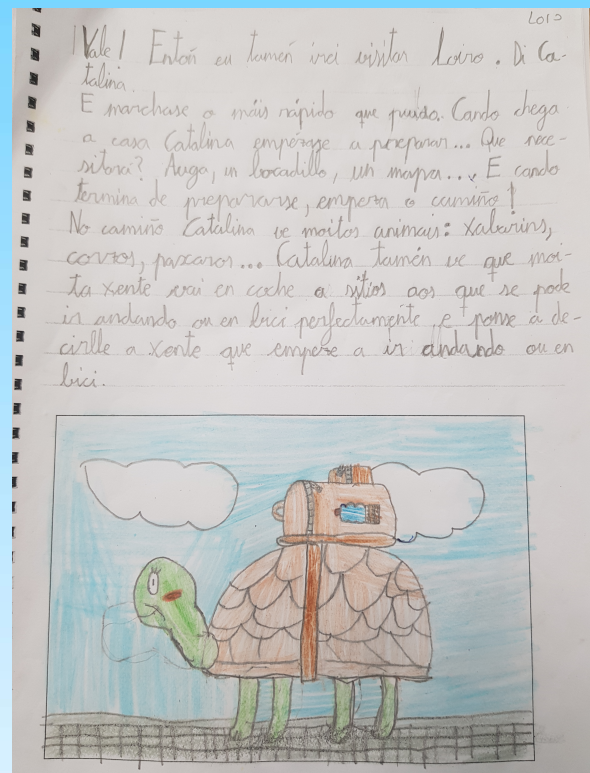 LOIS
¡Vale! Entón eu tamén irei visitar Loiro. Di Ca-
talina.
E marchase o máis rápido que puido. Cando chega
a casa Catalina empézase a preparar... Que nece-
sitará? Auga, un bocadillo, un mapa... E cando
termina de prepararse, empeza o camiño!
No camiño Catalina ve moitos animais: xabarins,
corzos, paxaros... Catalina tamén ve que moi-
ta xente vai en coche a sitios aos que se pode
ir andando ou en bici perfectamente e ponse a de-
cirlle a xente que empeze a ir andando ou en
bici.